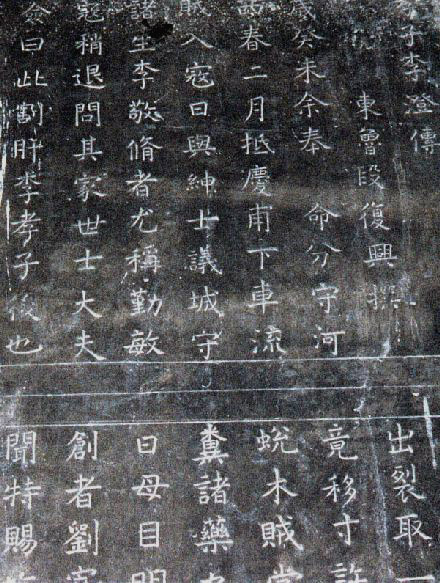 孝子李澄傳
東魯段復興撰
歲癸未余奉 命分守河
西春二月抵慶甫下車流
賊入寇日與紳士議城守
諸生李敬脩者尤稱勤敏
寇稱退問其家世士大夫
僉曰此割肝李孝子後也
出裂取一
竟移寸許
蛻木賊
糞諸藥
日母目明
創者劉
聞特賜